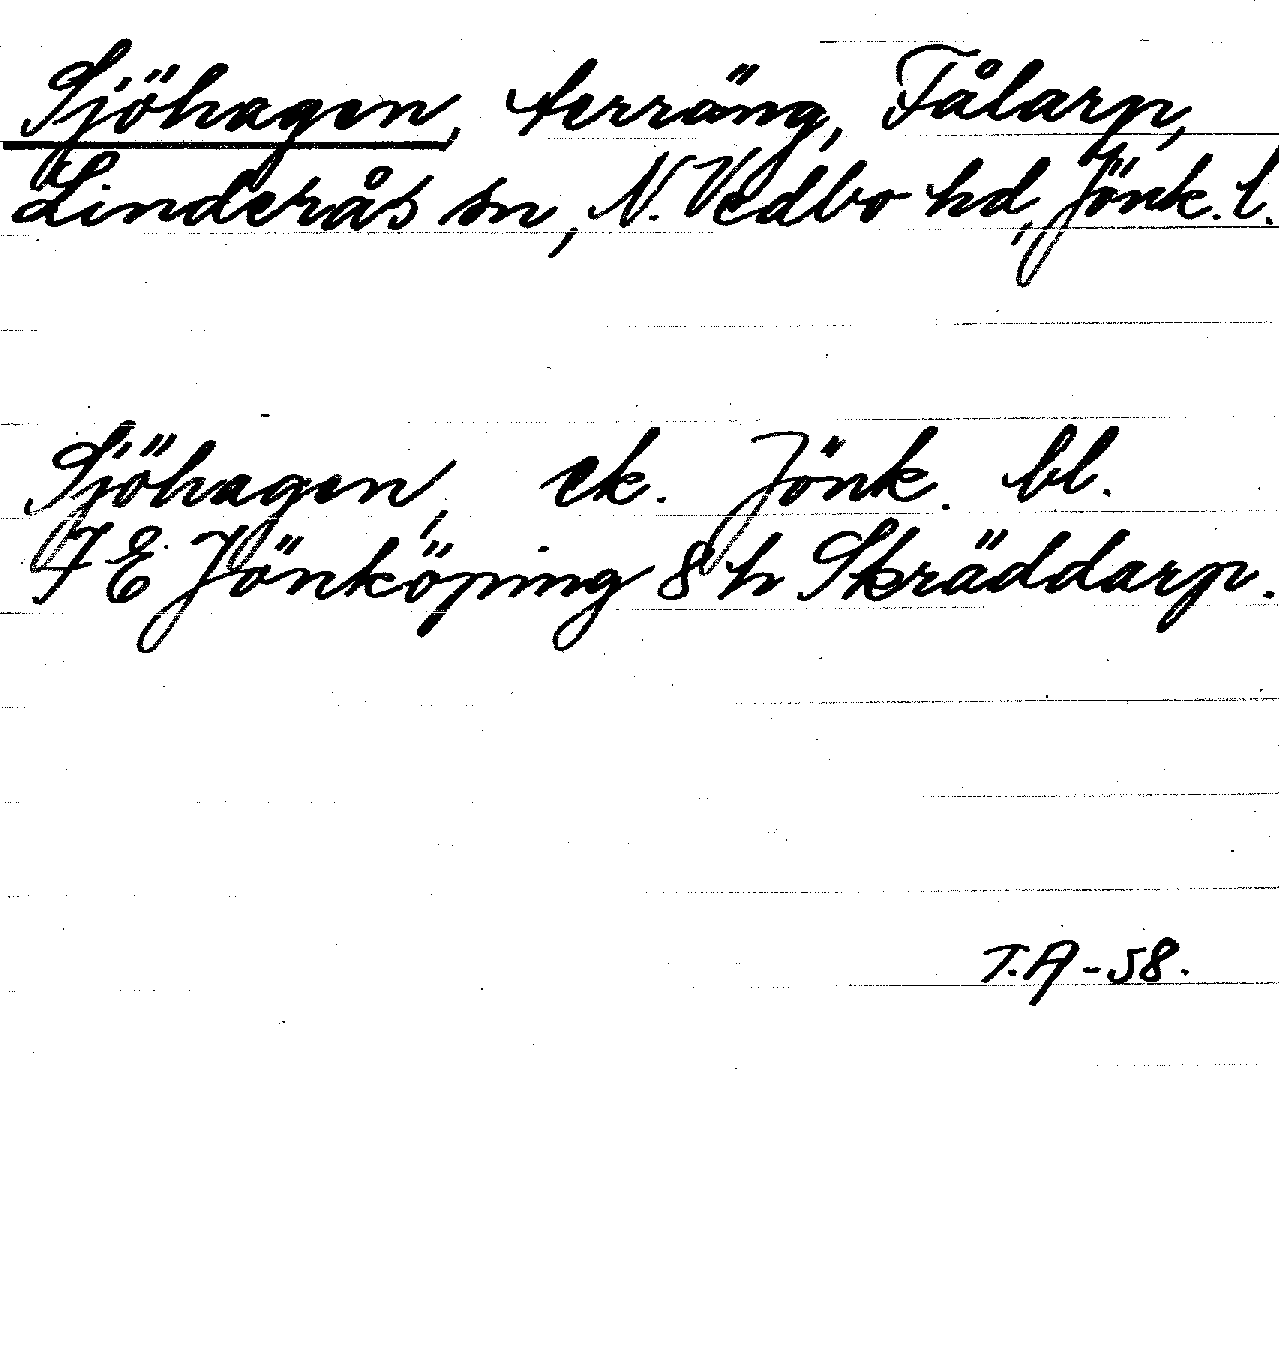 Sjöhagen, terräng, Fålarp,
Linderås sn, N. Vedbo hd, Jönk. l.
Sjöhagen, ek. Jönk. bl.
7 E Jönköping 8 h Skräddarp.
T.A-58.